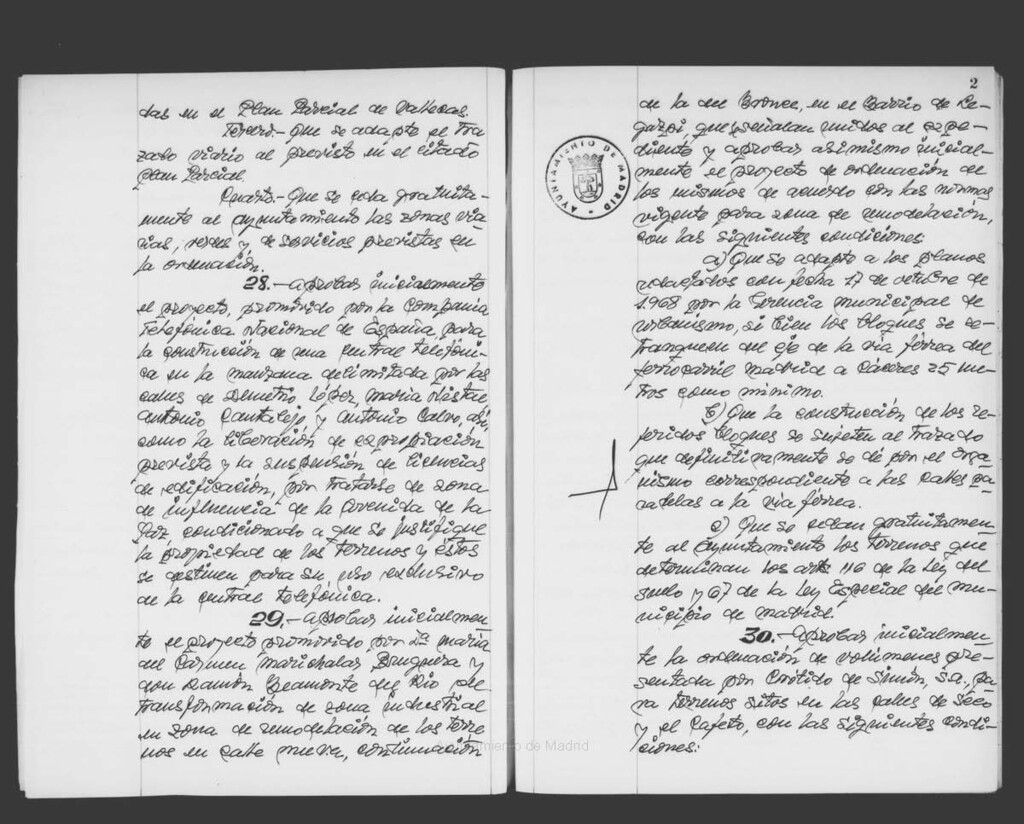 das en el Plan Parcial de Vallecas.
Tercero.- Que se adapte el tra-
zado viario al previsto en el citado
Plan Parcial.
Cuarto.- Que se ceda gratuita-
mente al Ayuntamiento las zonas via-
rias, verdes y de servicios previstas en
la ordenación.
28.- Aprobar inicialmente
el proyecto, promovido por la Compañía
Telefónica Nacional de España, para
la construcción de una central telefóni-
ca en la manzana delimitada por las
calles de Demetrio López, María Nistal
Antonio Cantalejo y Antonio Calvo, así
como la liberación de expropiación
prevista y la suspensión de licencias
de edificación, por tratarse de zona
de influencia de la Avenida de la
Paz, condicionado a que se justifique
la propiedad de los terrenos y éstos
se destinen para su uso exclusivo
de la central telefónica.
29.- Aprobar inicialmen-
te el proyecto promovido por Dª María
del Carmen Marichalar Bruguera y
don Ramón Beamonte del Río de
transformación de zona industrial
en zona de remodelación de los terre
nos en calle nueva, continuación
2
de la del Bronce, en el Barrio de Le-
gazpi, que señalan unidos al expe-
diente y aprobar asimismo inicial-
mente el proyecto de ordenación de
los mismos de acuerdo con las normas
vigente para zona de remodelación,
con las siguientes condiciones:
a) Que se adapte a los planos
redactados con fecha 17 de octubre de
1968 por la Gerencia municipal de
Urbanismo, si bien los bloques se re-
tranqueen del eje de la vía férrea del
ferrocarril Madrid a Cáceres 25 me-
tros como mínimo.
b) Que la construcción de los re-
feridos bloques se sujeten al trazado
que definitivamente se dé por el orga-
nismo correspondiente a las calles pa-
ralelas a la vía férrea.
c) Que se cedan gratuitamen-
te al Ayuntamiento los terrenos que
determinan los arts 116 de la Ley del
Suelo y 67 de la Ley Especial del Mu-
nicipio de Madrid.
30.- Aprobar inicialmen-
te la ordenación de volúmenes pre-
sentada por Crótido de Simón, S.A., pa-
ra terrenos sitos en las calles de Seco
y el Cafeto, con las siguientes condi-
ciones:
AYUNTAMIENTO DE MADRID
Ayuntamiento de Madrid